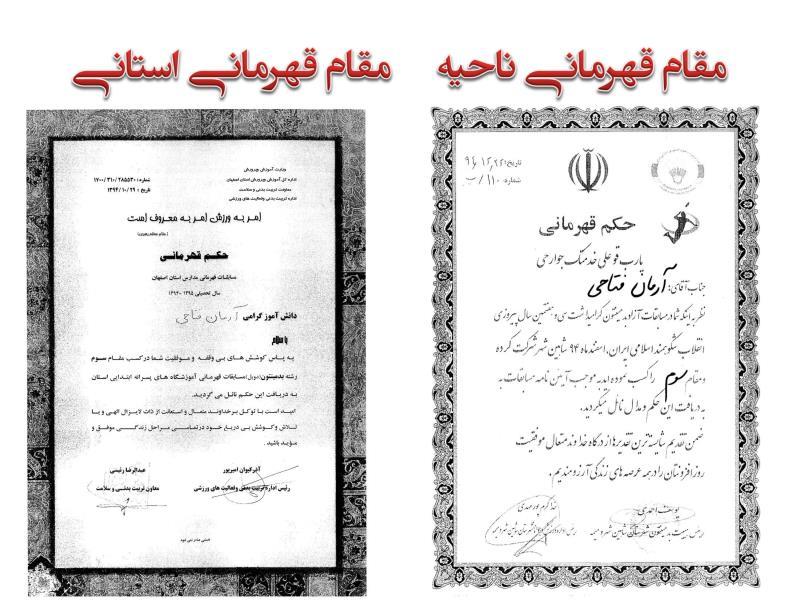 مقام قهرمانی ناحیه
مقام قهرمانی استانی
تاریخ:
شماره: ۱۱۰/ب
حکم قهرمانی
یارب قو علی خدمتک جوارحی
جناب آقای: آرمان فتاحی
نظر به اینکه شما در مسابقات آزاد بدمینتون گرامیداشت سی و هفتمین سال پیروزی
انقلاب شکوهمند اسلامی ایران، اسفندماه ۹۴ شاهین شهر شرکت کرده
و مقام سوم را کسب نموده اید به موجب آیین نامه مسابقات به
دریافت این حکم و مدال نائل میگردید.
ضمن تقدیم شایسته ترین تقدیرها از درگاه خداوند متعال موفقیت
روزافزونتان را در همه عرصه های زندگی آرزومندیم.
یوسف احمدی
رئیس هیئت بدمینتون شهرستان شاهین شهر و میمه
خداکرم پورمهدی
وزارت آموزش وپرورش
اداره کل آموزش وپرورش استان اصفهان
معاونت تربیت بدنی و سلامت
اداره تربیت بدنی وفعالیت های ورزشی
شماره: ۱۷۰۰/۳۱۰/۲۸۵۵۳۰
تاریخ: ۱۳۹۴/۱۰/۲۹
امر به ورزش امر به معروف است
(مقام معظم رهبری)
حکم قهرمانی
مسابقات قهرمانی مدارس استان اصفهان
سال تحصیلی ۱۳۹۵-۱۳۹۴
دانش آموز گرامی آرمان فتاحی
با سلام
به پاس کوشش های بی وقفه و موفقیت شما درکسب مقام سوم
رشته بدمینتون(دوبل)مسابقات قهرمانی آموزشگاه های پسرانه ابتدایی استان
به دریافت این حکم نائل می گردید.
امید است با توکل برخداوند متعال و استعانت از ذات لایزال الهی و با
تلاش وکوشش بی دریغ خود درتمامی مراحل زندگی موفق و
مؤید باشید.
آذرکیوان امیرپور
رئیس اداره تربیت بدنی وفعالیت های ورزشی
عبدالرضا رئیسی
معاون تربیت بدنی و سلامت
المثنی صادر نمی شود